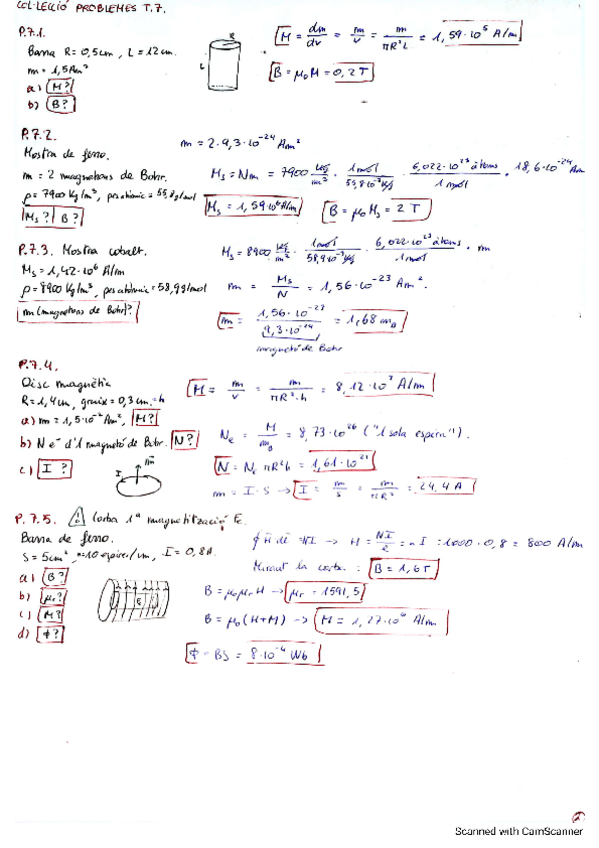 COL·LECCIÓ PROBLEMES T.7.
P.7.1.
Barra R=0,5cm, L=12cm.
m=1,5Am²
a) M?
b) B?
R
L
M = dm/dv = m/v = m/πR²L = 1,59·10⁵ A/m
B=μ₀M=0,2T
P.7.2.
Mostra de ferro.
m=2 magnetons de Bohr.
ρ=7900 Kg/m³, pes atòmic=55,8g/mol
Ms? B?
m=2·9,3·10⁻²⁴ Am²
Ms=Nm = 7900 kg/m³ · 1mol/55,8·10⁻³kg · 6,022·10²³ àtoms/1mol · 18,6·10⁻²⁴ Am
Ms=1,59·10⁶A/m
B=μ₀Ms=2T
P.7.3. Mostra cobalt.
Ms=1,42·10⁶ A/m
ρ=8900 Kg/m³, pes atòmic=58,9g/mol
m (magnetons de Bohr)?
Ms=8900 kg/m³ · 1mol/58,9·10⁻³kg · 6,022·10²³ àtoms/1mol · m
m = Ms/N = 1,56·10⁻²³ Am².
m = 1,56·10⁻²³/9,3·10⁻²⁴ = 1,68 mB
magnetó de Bohr
P.7.4.
Disc magnètic
R=1,4cm, gruix=0,3cm=h
a) m=1,5·10⁻² Am², M?
b) N e⁻ d'1 magnetó de Bohr. N?
c) I?
I
m
M = m/v = m/πR²·h = 8,12·10³ A/m
Ne = M/mB = 8,73·10²⁶ ("1 sola espira").
N = Ne πR²h = 1,61·10²¹
m=I·S → I = m/S = m/πR² = 24,4 A
P.7.5. Corba 1ª magnetització Fe.
Barra de ferro.
S=5cm², n=10 espires/cm, I=0,8A.
a) B?
b) μr?
c) M?
d) Φ?
∮H dl=NI → H = NI/l = nI = 1000·0,8=800 A/m
Mirant la corba: B=1,6T
B=μ₀μrH → μr=1591,5
B=μ₀(H+M) → M=1,27·10⁶ A/m
Φ=BS=8·10⁻⁴ Wb
Scanned with CamScanner